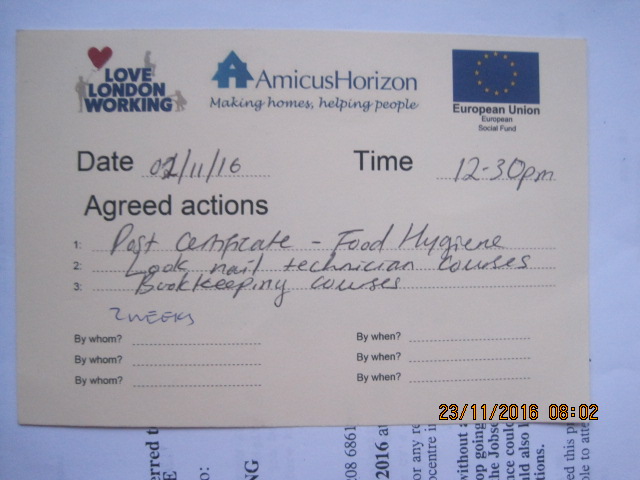 LOVE
LONDON
WORKING
AmicusHorizon
Making homes, helping people
European Union
European
Social Fund
Date 02/11/16 Time 12-30pm
Agreed actions
1: Post Certificate - Food Hygiene
2: Look nail technician courses
3: Bookkeeping courses
2 WEEKS
By whom? By when?
By whom? By when?
By whom? By when?
23/11/2016 08:02